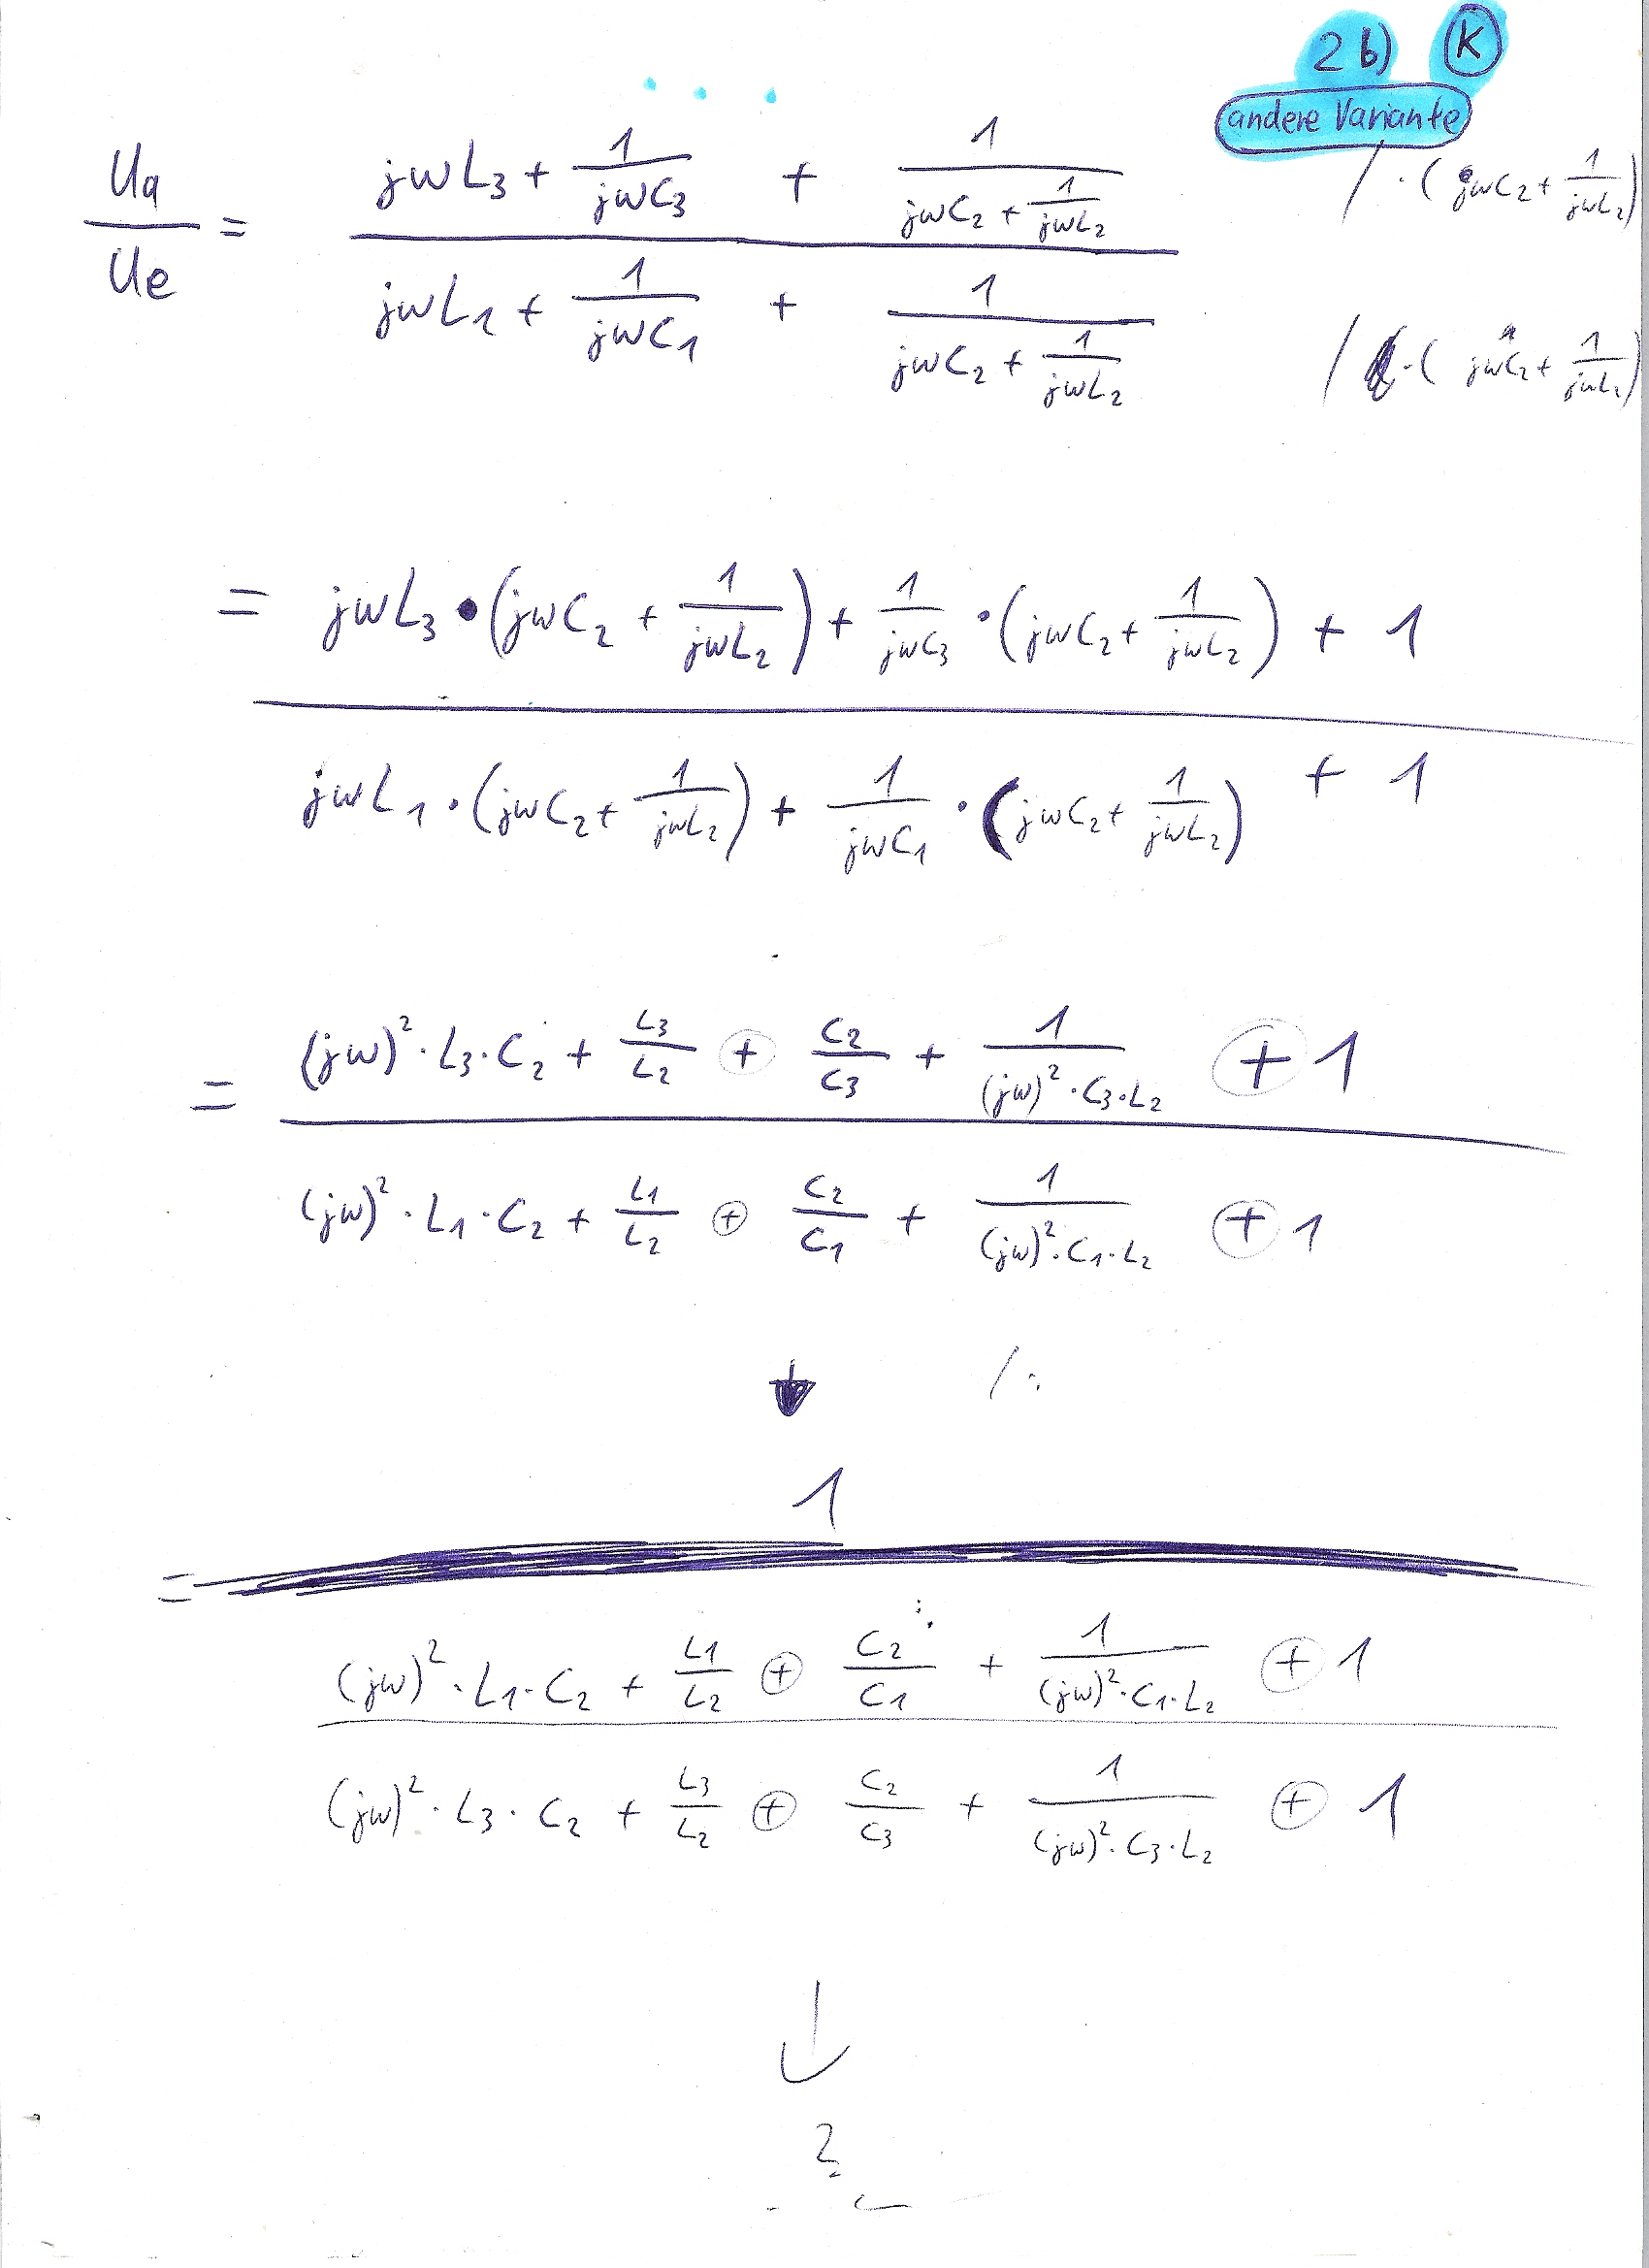 2 b) K
andere Variante
Ua/Ue = (jwL3 + 1/(jwC3) + 1/(jwC2 + 1/(jwL2))) / (jwL1 + 1/(jwC1) + 1/(jwC2 + 1/(jwL2)))
/ · (jwC2 + 1/(jwL2))
/ · (jwC2 + 1/(jwL2))
= (jwL3 · (jwC2 + 1/(jwL2)) + 1/(jwC3) · (jwC2 + 1/(jwL2)) + 1) / (jwL1 · (jwC2 + 1/(jwL2)) + 1/(jwC1) · (jwC2 + 1/(jwL2)) + 1)
= ((jw)² · L3 · C2 + L3/L2 ⊕ C2/C3 + 1/((jw)² · C3 · L2) ⊕ 1) / ((jw)² · L1 · C2 + L1/L2 ⊕ C2/C1 + 1/((jw)² · C1 · L2) ⊕ 1)
↓ / :
= 1 / (((jw)² · L1 · C2 + L1/L2 ⊕ C2/C1 + 1/((jw)² · C1 · L2) ⊕ 1) / ((jw)² · L3 · C2 + L3/L2 ⊕ C2/C3 + 1/((jw)² · C3 · L2) ⊕ 1))
↓
?